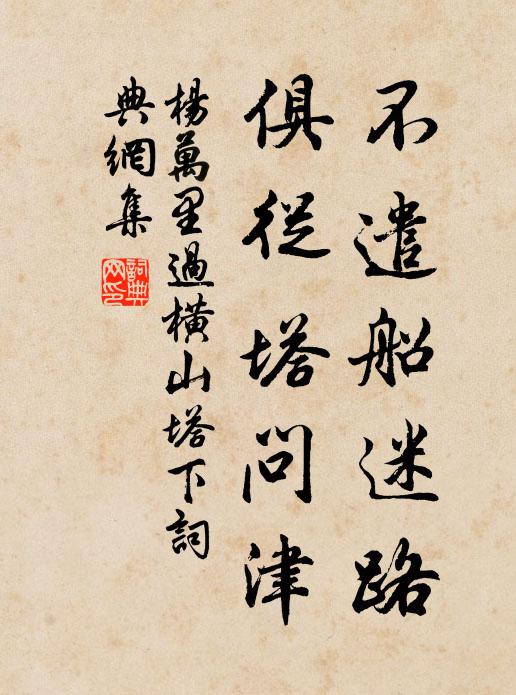 不遣船迷路
俱從塔問津
楊萬里過橫山塔下詞
典網集
詞典
网印